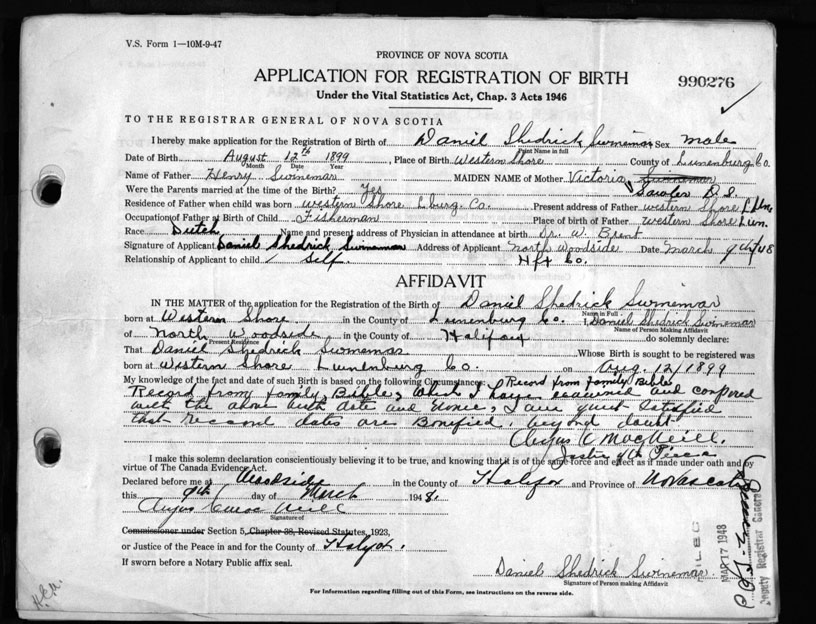 V.S. Form 1—10M-9-47
PROVINCE OF NOVA SCOTIA
APPLICATION FOR REGISTRATION OF BIRTH
990276
Under the Vital Statistics Act, Chap. 3 Acts 1946
TO THE REGISTRAR GENERAL OF NOVA SCOTIA
I hereby make application for the Registration of Birth of Daniel Shedrick Swinemar Sex male
Print Name in full
Date of Birth August 12th 1899, Place of Birth Western Shore County of Lunenburg Co.
Month Date Year
Name of Father Henry Swinemar MAIDEN NAME of Mother Victoria Swinemar
Were the Parents married at the time of the Birth? Yes Sawler D.S.
Residence of Father when child was born western Shore Lburg. Co. Present address of Father western Shore L
Occupation of Father at Birth of Child Fisherman Place of birth of Father Western Shore Lun.
Race Dutch Name and present address of Physician in attendance at birth Dr. W. Brent
Signature of Applicant Daniel Shedrick Swinemar Address of Applicant North Woodside Date March 9th/48
Relationship of Applicant to child Self. Hfx Co.
AFFIDAVIT
IN THE MATTER of the application for the Registration of the Birth of Daniel Shedrick Swinemar
Name in Full
born at Western Shore in the County of Lunenburg Co. I, Daniel Shedrick Swinemar
Name of Person Making Affidavit
of North Woodside in the County of Halifax do solemnly declare:
Present Residence
That Daniel Shedrick Swinemar Whose Birth is sought to be registered was
born at Western Shore Lunenburg Co. on Aug. 12/1899
My knowledge of the fact and date of such Birth is based on the following Circumstances: Record from Family Bible
Record from family Bible, which I have examined and compared
with the above birth date and name, I am quit satisfied
that record dates are Bonified, beyond doubt
Angus C MacNeill.
Justice of the Peace
I make this solemn declaration conscientiously believing it to be true, and knowing that it is of the same force and effect as if made under oath and by
virtue of The Canada Evidence Act.
Declared before me at Woodside in the County of Halifax and Province of Novascotia
this 9th day of March 1948.
Angus C MacNeill
Signature of
Commissioner under Section 5, Chapter 38, Revised Statutes, 1923,
or Justice of the Peace in and for the County of Halifax.
If sworn before a Notary Public affix seal.
Daniel Shedrick Swinemar
Signature of Person making Affidavit
For Information regarding filling out of this Form, see instructions on the reverse side.
FILED
MAR 17 1948
Deputy Registrar General